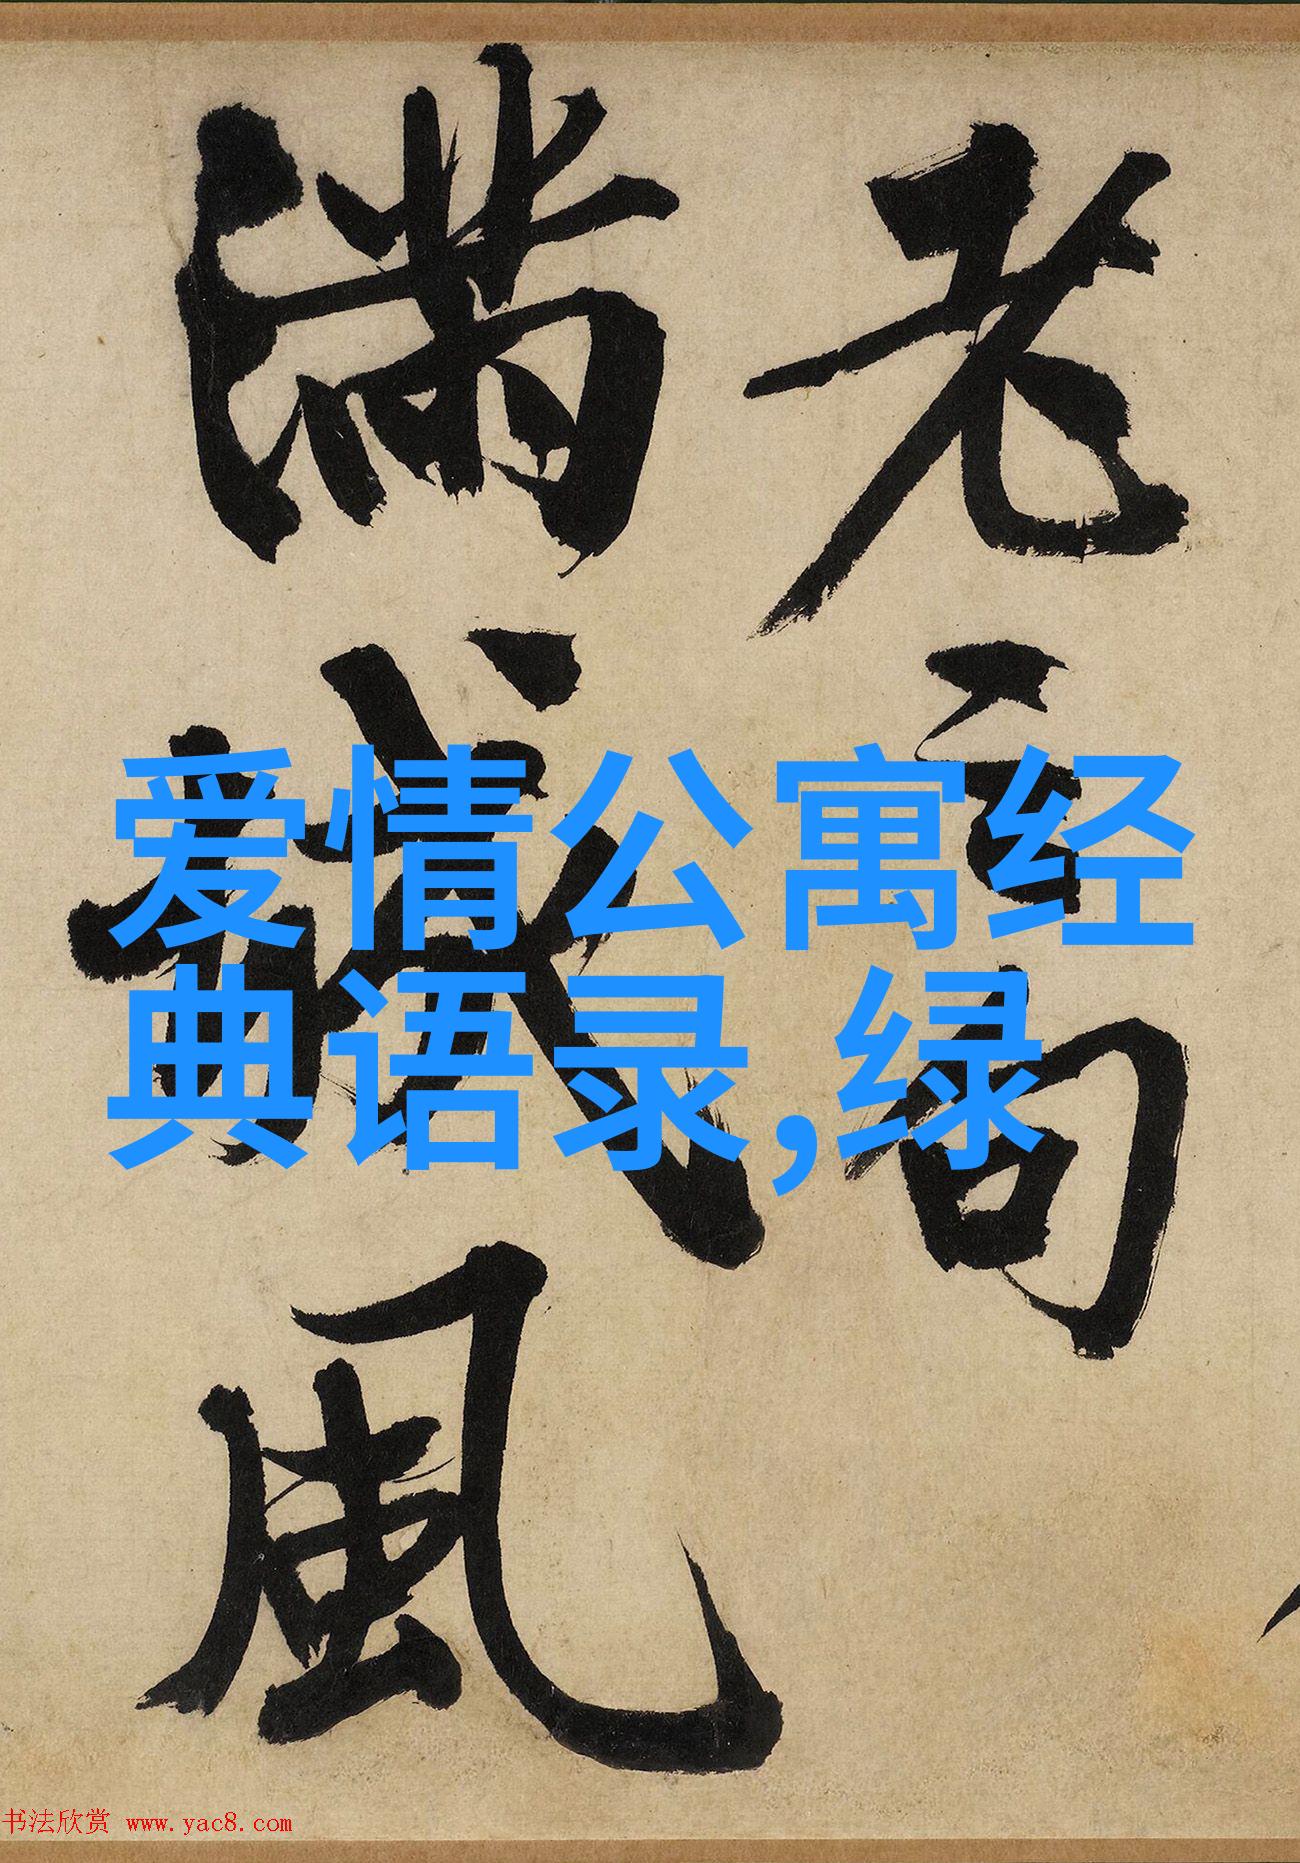 老句
满城風
爱情公寓经
典语录,绿
书法欣赏 www.yac8.com